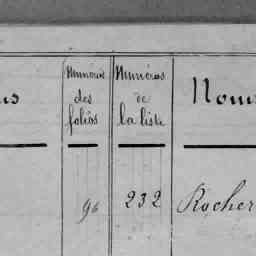 Numéros Numéros
ms des de Noms
folios la liste
96 232 Rocher